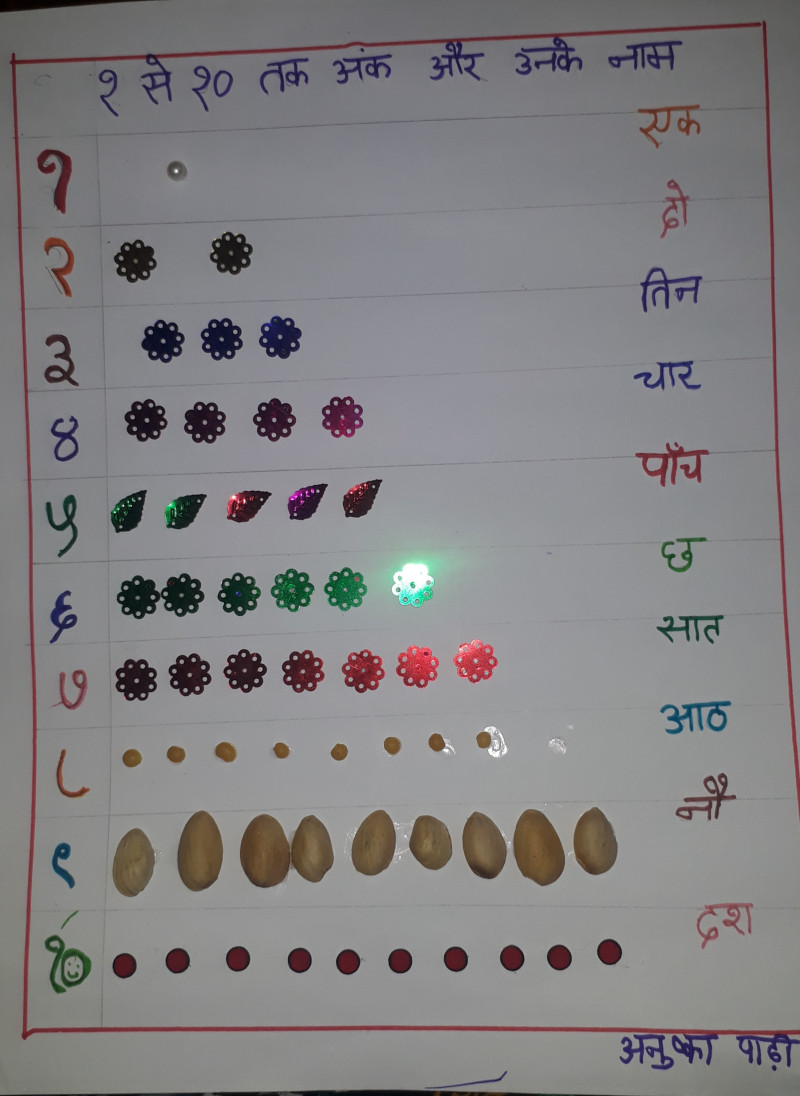 १ से १० तक अंक और उनके नाम
१ एक
२ दो
३ तिन
४ चार
५ पाँच
६ छ
७ सात
८ आठ
९ नौ
१० दश
अनुष्का पाढ़ी